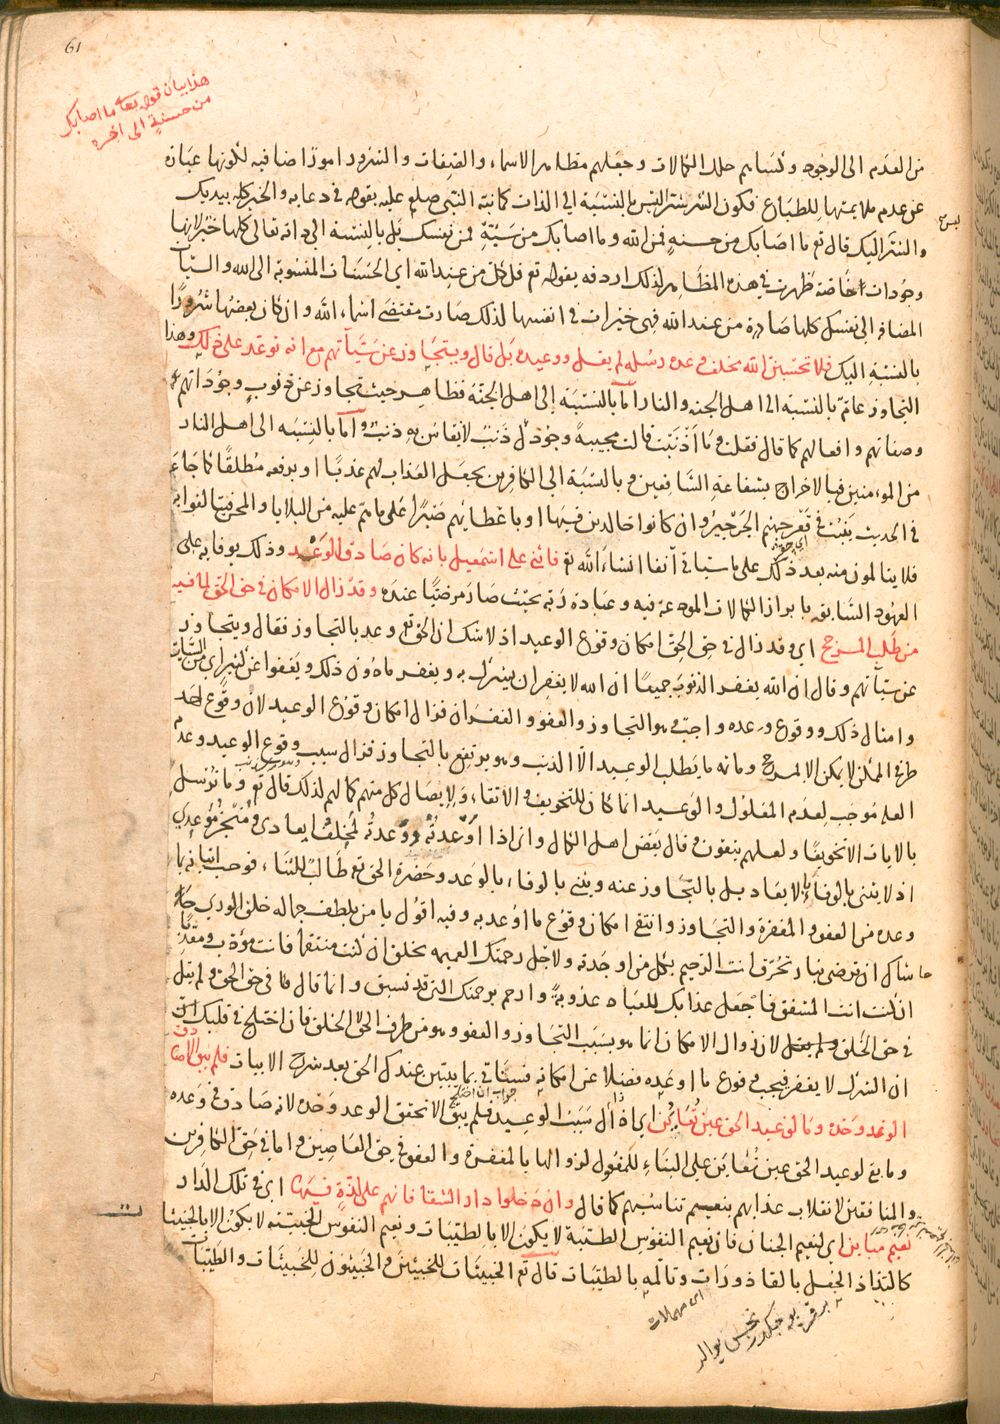 61
هذا بيان قوله تعالى ما اصابك
من حسنة الى اخره
من العدم الى الوجود وكسابهم حلل الكمالات وجعلهم مظاهر الاسماء والصفات والشرور امورا اضافية لكونها عبارة
عن عدم ملايمتها للطبايع فكون الشر شرا ليس بالنسبة الى الذات كما نبه النبى صلعم عليه بقوله فى دعايه والخير كله بيديك
والشر ليس اليك قال تع ما اصابك من حسنة فمن الله وما اصابك من سيئة فمن نفسك بل بالنسبة الى ذاته تعالى كلها خير لانها
وجودات خاصة ظهرت فى هذه المظاهر لذلك اردفه بقوله تع قل كل من عند الله اى الحسنات المنسوبة الى الله والسيئات
المضافة الى نفسك كلها صادرة من عند الله فهى خيرات فى انفسها لذلك صارت مقتضى اسماء الله وان كان بعضها شرورا
بالنسبة اليك فلا تحسبن الله مخلف وعده رسله لم يقل ووعيده بل قال ويتجاوز عن سيآتهم مع انه توعد على ذلك وهذا
التجاوز عام بالنسبة الى اهل الجنة والنار اما بالنسبة الى اهل الجنة فظاهر حيث تجاوز عن ذنوب وجوداتهم
وصفاتهم وافعالهم كما قال فقلت وما اذنبت قالت مجيبة وجودك ذنب لا يقاس به ذنب واما بالنسبة الى اهل النار
من المؤمنين فبالاخراج بشفاعة الشافعين وبالنسبة الى الكافرين بجعل العذاب لهم عذبا او برفعه مطلقا كما جاء
فى الحديث ينبت فى قعر جهنم الجرجير وان كانوا خالدين فيها او باعطايهم صبرا على ما هم عليه من البلايا والمحن
فلا يتالمون منه بعد ذلك على ما سياتى آنفا انشاء الله تع فاثنى على اسمعيل بانه كان صادق الوعد وذلك بوفايه على
العهود السابقة بابراز الكمالات المودعة فيه وعبادة ربه بحيث صار مرضيا عنده وقد زال الامكان فى حق الحق لما فيه
من طلب المرجح اى وقد زال فى حق الحق امكان وقوع الوعيد اذ لا شك ان الحق تع وعد بالتجاوز فقال ويتجاوز
عن سيآتهم وقال ان الله يغفر الذنوب جميعا ان الله لا يغفر ان يشرك به ويغفر ما دون ذلك ويعفوا عن كثير اى من السيئات
وامثال ذلك ووقوع وعده واجب وهو التجاوز والعفو والغفران فزال امكان وقوع الوعيد لان وقوع احد
طرفى الممكن لا يمكن الا بمرجح وما ثم ما يطلب الوعيد الا الذنب وهو يرتفع بالتجاوز فزال سبب وقوع الوعيد وعدم
العلة موجب لعدم المعلول والوعيد انما كان للتخويف والاتقاء ولايصال كل منهم كمالهم لذلك قال تع وما نرسل
بالايات الا تخويفا ولعلهم يتقون وقال بعض اهل الكمال وانى اذا اوعدته ووعدته لمخلف ايعادى ومنجز موعدى
اذ لا يثنى بالوفاء بالايعاد بل بالتجاوز عنه ويثنى بالوفاء بالوعد وحضرة الحق تع طالب للثناء فوجب اتيانه بما
وعده من العفو والمغفرة والتجاوز وانتفى امكان وقوع ما اوعد به وفيه اقول يا من بلطف جماله خلق الورى حا
شاك ان ترضى بنار تحرق انت الرحيم بكل من اوجدته ولاجل رحمتك العميمة تخلق ان كنت منتقما فانت مؤدب
ان كنت انت المشفق فاجعل عذابك للعباد عذوبة وارحم برحمتك التى قد تسبق وانما قال لما فى حق الحق ولم يقل
فى حق الخلق لان زوال الامكان انما هو بسبب التجاوز والعفو وهو من طرف الحق لا الخلق فان اختلج فى قلبك
ان الشرك لا يغفر فيجب وقوع ما اوعده فضلا عن امكانه فسياتى ما يبين عندك الحق بعد شرح الابيات فلم يبق الا صادق
الوعد وحده وما لوعيد الحق عين تعاين اى اذا زال سبب الوعيد فلم يبق الا تحقق الوعد وحده لانه صادق فى وعده
وما بقى لوعيد الحق عين تعاين على البناء للمفعول لزوالها بالمغفرة والعفو فى حق العاصين واما فى حق الكافرين
والمنافقين لانقلاب عذابهم بنعيم تناسبهم كما قال وان دخلوا دار الشقا فانهم على لذة فيها اى فى تلك الدار
نعيم مباين اى لنعيم الجنان فان نعيم النفوس الطيبة لا يكون الا بالطيبات ونعيم النفوس الخبيثة لا يكون الا بالخبيثات
كالتذاذ الجعل بالقاذورات وتالمه بالطيبات قال تع الخبيثات للخبيثين والخبيثون للخبيثات والطيبات